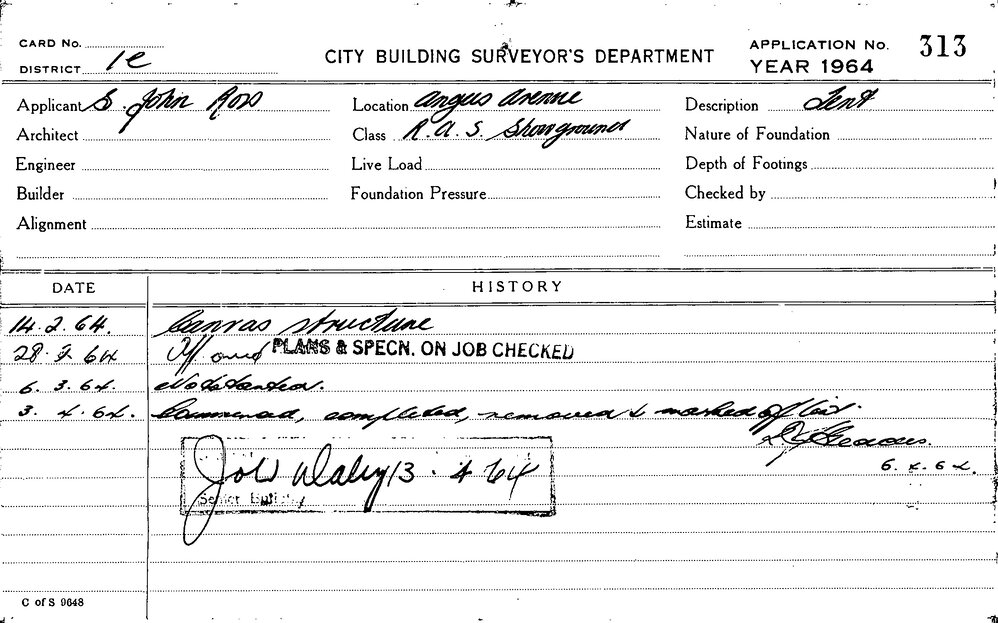 CARD No.
DISTRICT 1e
CITY BUILDING SURVEYOR'S DEPARTMENT
APPLICATION No. 313
YEAR 1964
Applicant S. John Ross
Location Angus Avenue
Description Tent
Architect
Class R.A.S. Showground
Nature of Foundation
Engineer
Live Load
Depth of Footings
Builder
Foundation Pressure
Checked by
Alignment
Estimate
DATE HISTORY
14.2.64. Canvas structure
28.2.64 PLANS & SPECN. ON JOB CHECKED
6.3.64. Not started.
3.4.64. Commenced, completed, removed & marked off list.
6.4.64.
13.4.64
Senior Building
C of S 9648